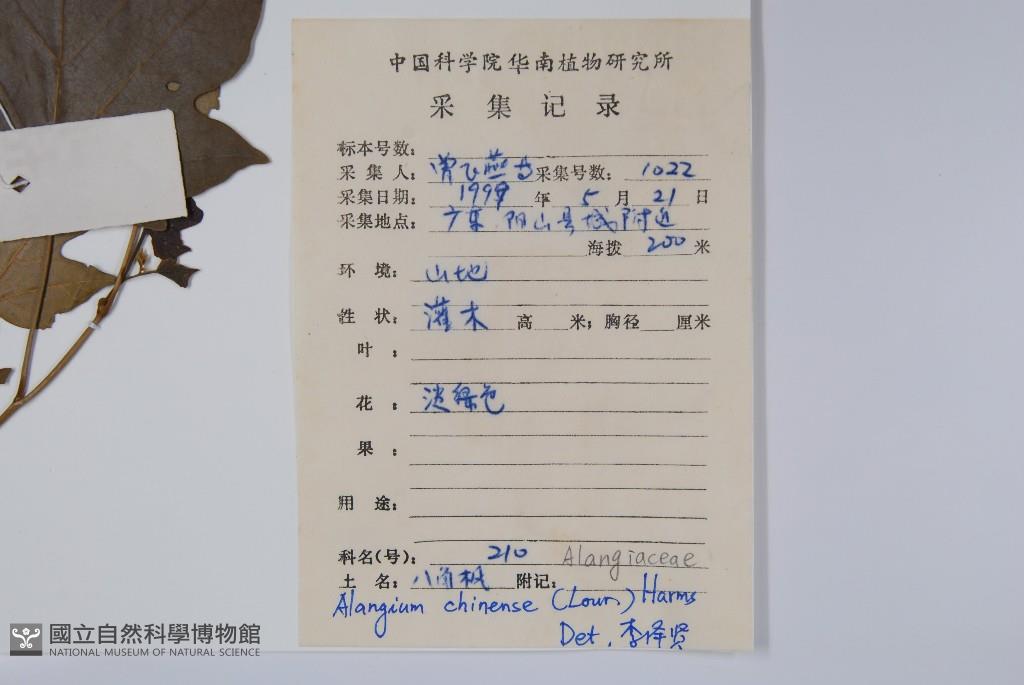 中国科学院华南植物研究所
采集记录
标本号数：
采集人：曾飞燕 采集号数：1022
采集日期：1999年5月21日
采集地点：广东 阳山县城附近
海拨 200 米
环境：山地
性状：灌木 高 米；胸径 厘米
叶：
花：淡绿色
果：
用途：
科名(号)：210 Alangiaceae
土名：八角枫 附记：
Alangium chinense (Lour.) Harms
Det. 李泽贤
國立自然科學博物館
NATIONAL MUSEUM OF NATURAL SCIENCE